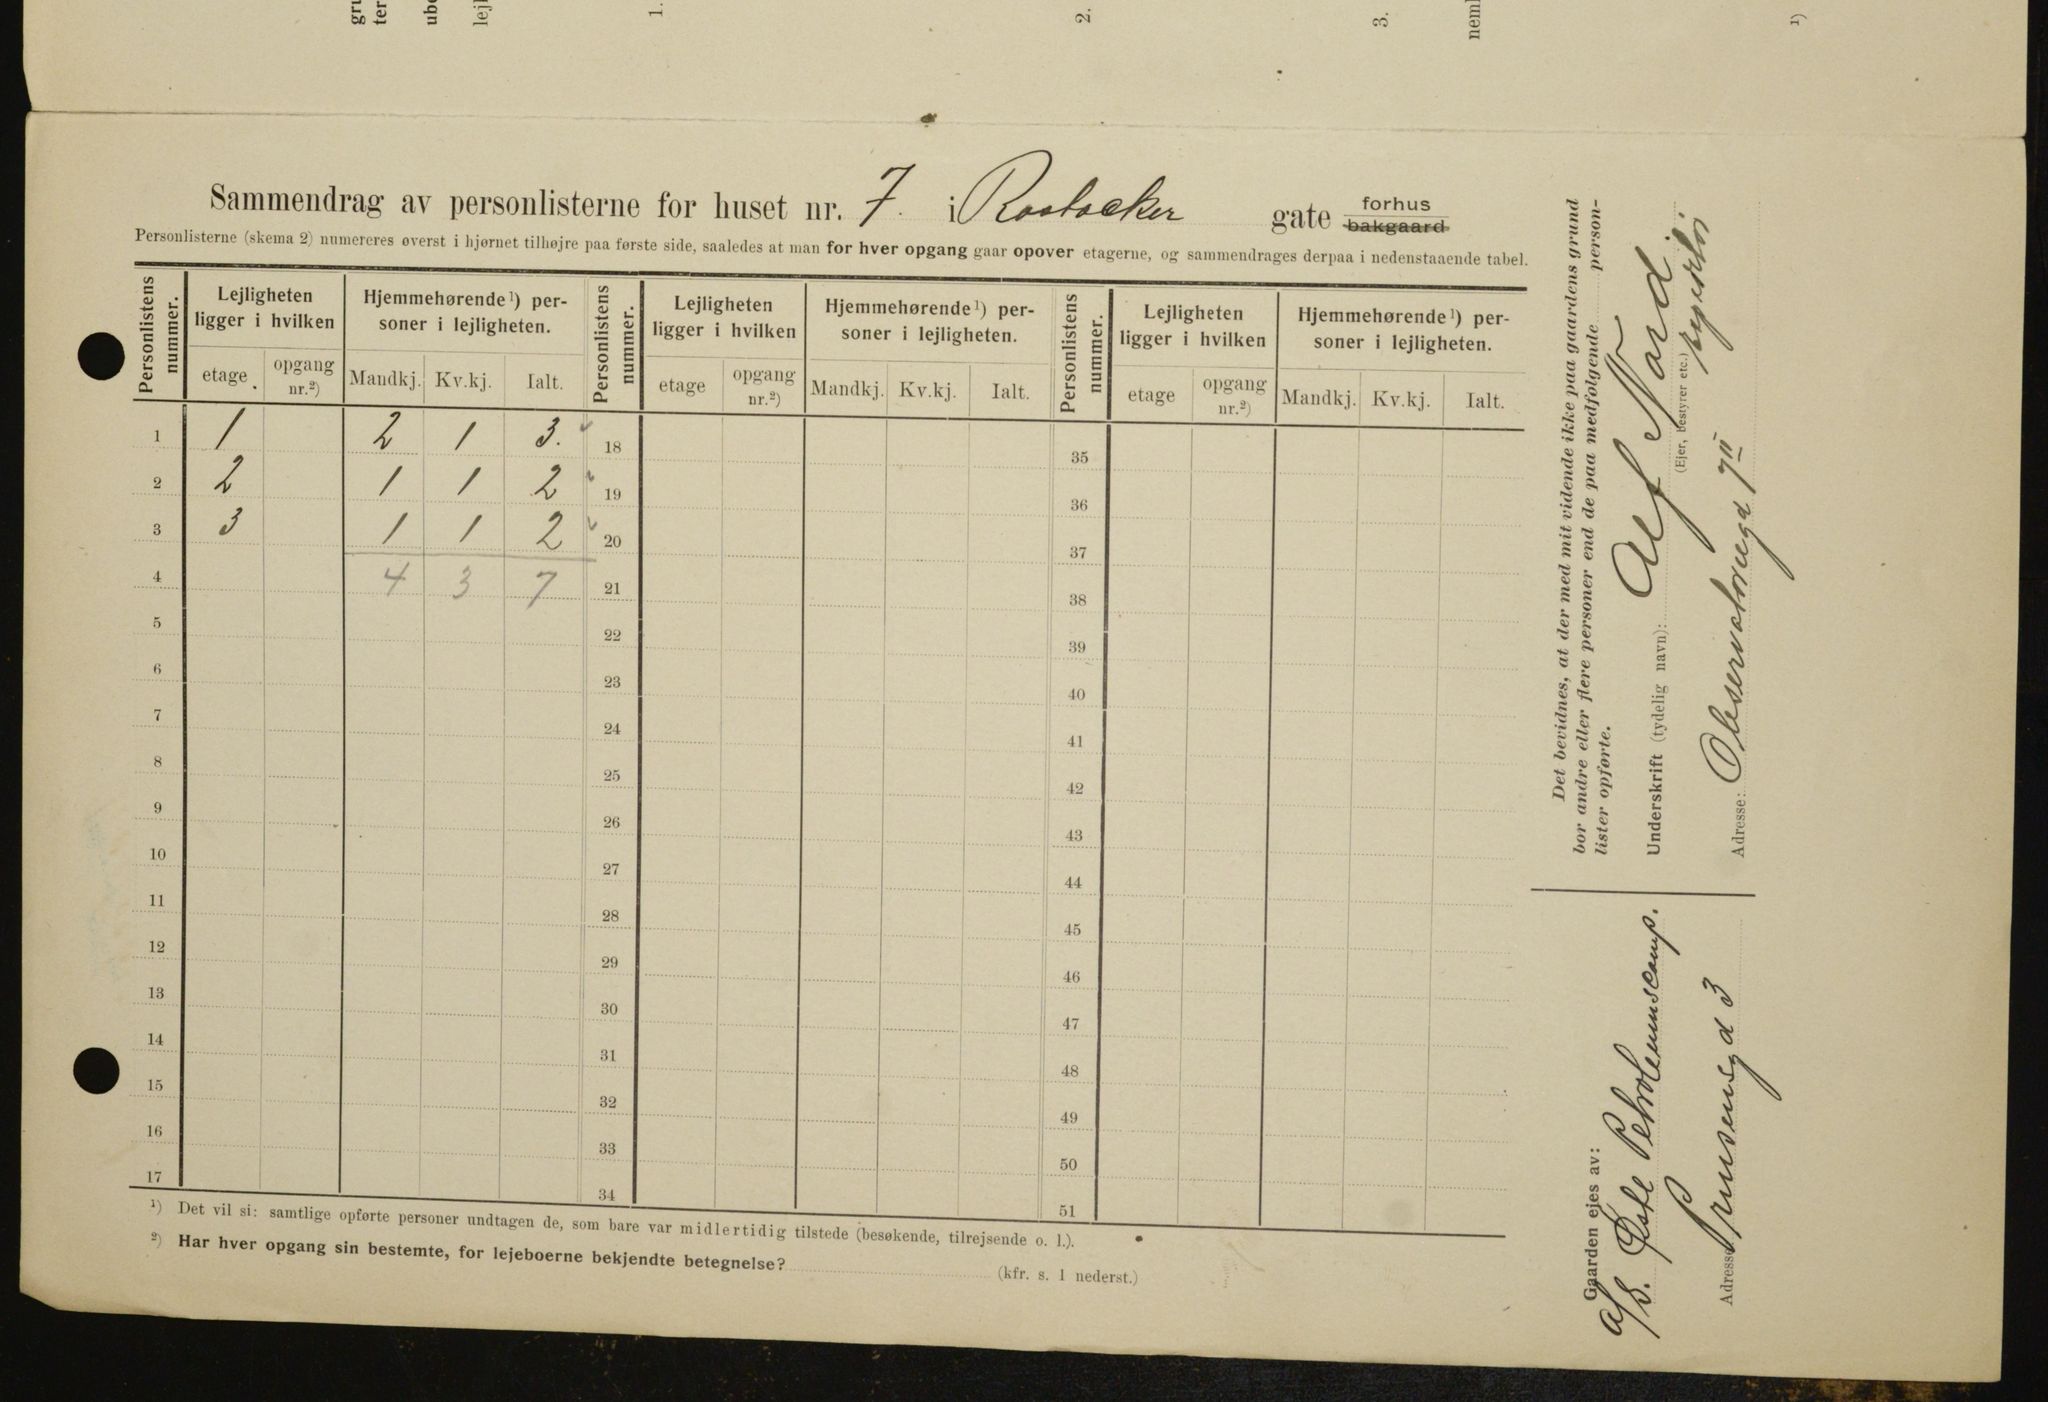 1.
2.
3.
1)
Sammendrag av personlisterne for huset nr. 7. i Rostocker gate forhus bakgaard
Personlisterne (skema 2) numereres øverst i hjørnet tilhøjre paa første side, saaledes at man for hver opgang gaar opover etagerne, og sammendrages derpaa i nedenstaaende tabel.
Personlistens nummer. Lejligheten ligger i hvilken Hjemmehørende 1) personer i lejligheten. Personlistens nummer. Lejligheten ligger i hvilken Hjemmehørende 1) personer i lejligheten. Personlistens nummer. Lejligheten ligger i hvilken Hjemmehørende 1) personer i lejligheten.
etage opgang nr.2) Mandkj. Kv.kj. Ialt. etage opgang nr.2) Mandkj. Kv.kj. Ialt. etage opgang nr.2) Mandkj. Kv.kj. Ialt.
1 1 2 1 3. 18 35
2 2 1 1 2 19 36
3 3 1 1 2 20 37
4 4 3 7 21 38
5 22 39
6 23 40
7 24 41
8 25 42
9 26 43
10 27 44
11 28 45
12 29 46
13 30 47
14 31 48
15 32 49
16 33 50
17 34 51
1) Det vil si: samtlige opførte personer undtagen de, som bare var midlertidig tilstede (besøkende, tilrejsende o. l.).
2) Har hver opgang sin bestemte, for lejeboerne bekjendte betegnelse? (kfr. s. 1 nederst.)
Det bevidnes, at der med mit vidende ikke paa gaardens grund
bor andre eller flere personer end de paa medfølgende person-
lister opførte.
Underskrift (tydelig navn): Alf Nord.
(Ejer, bestyrer etc.)
Adresse: Observatoriegd 7 II
Gaarden ejes av:
A/S. Østl Petroleumscomp.
Adresse: Prinsensgd 3